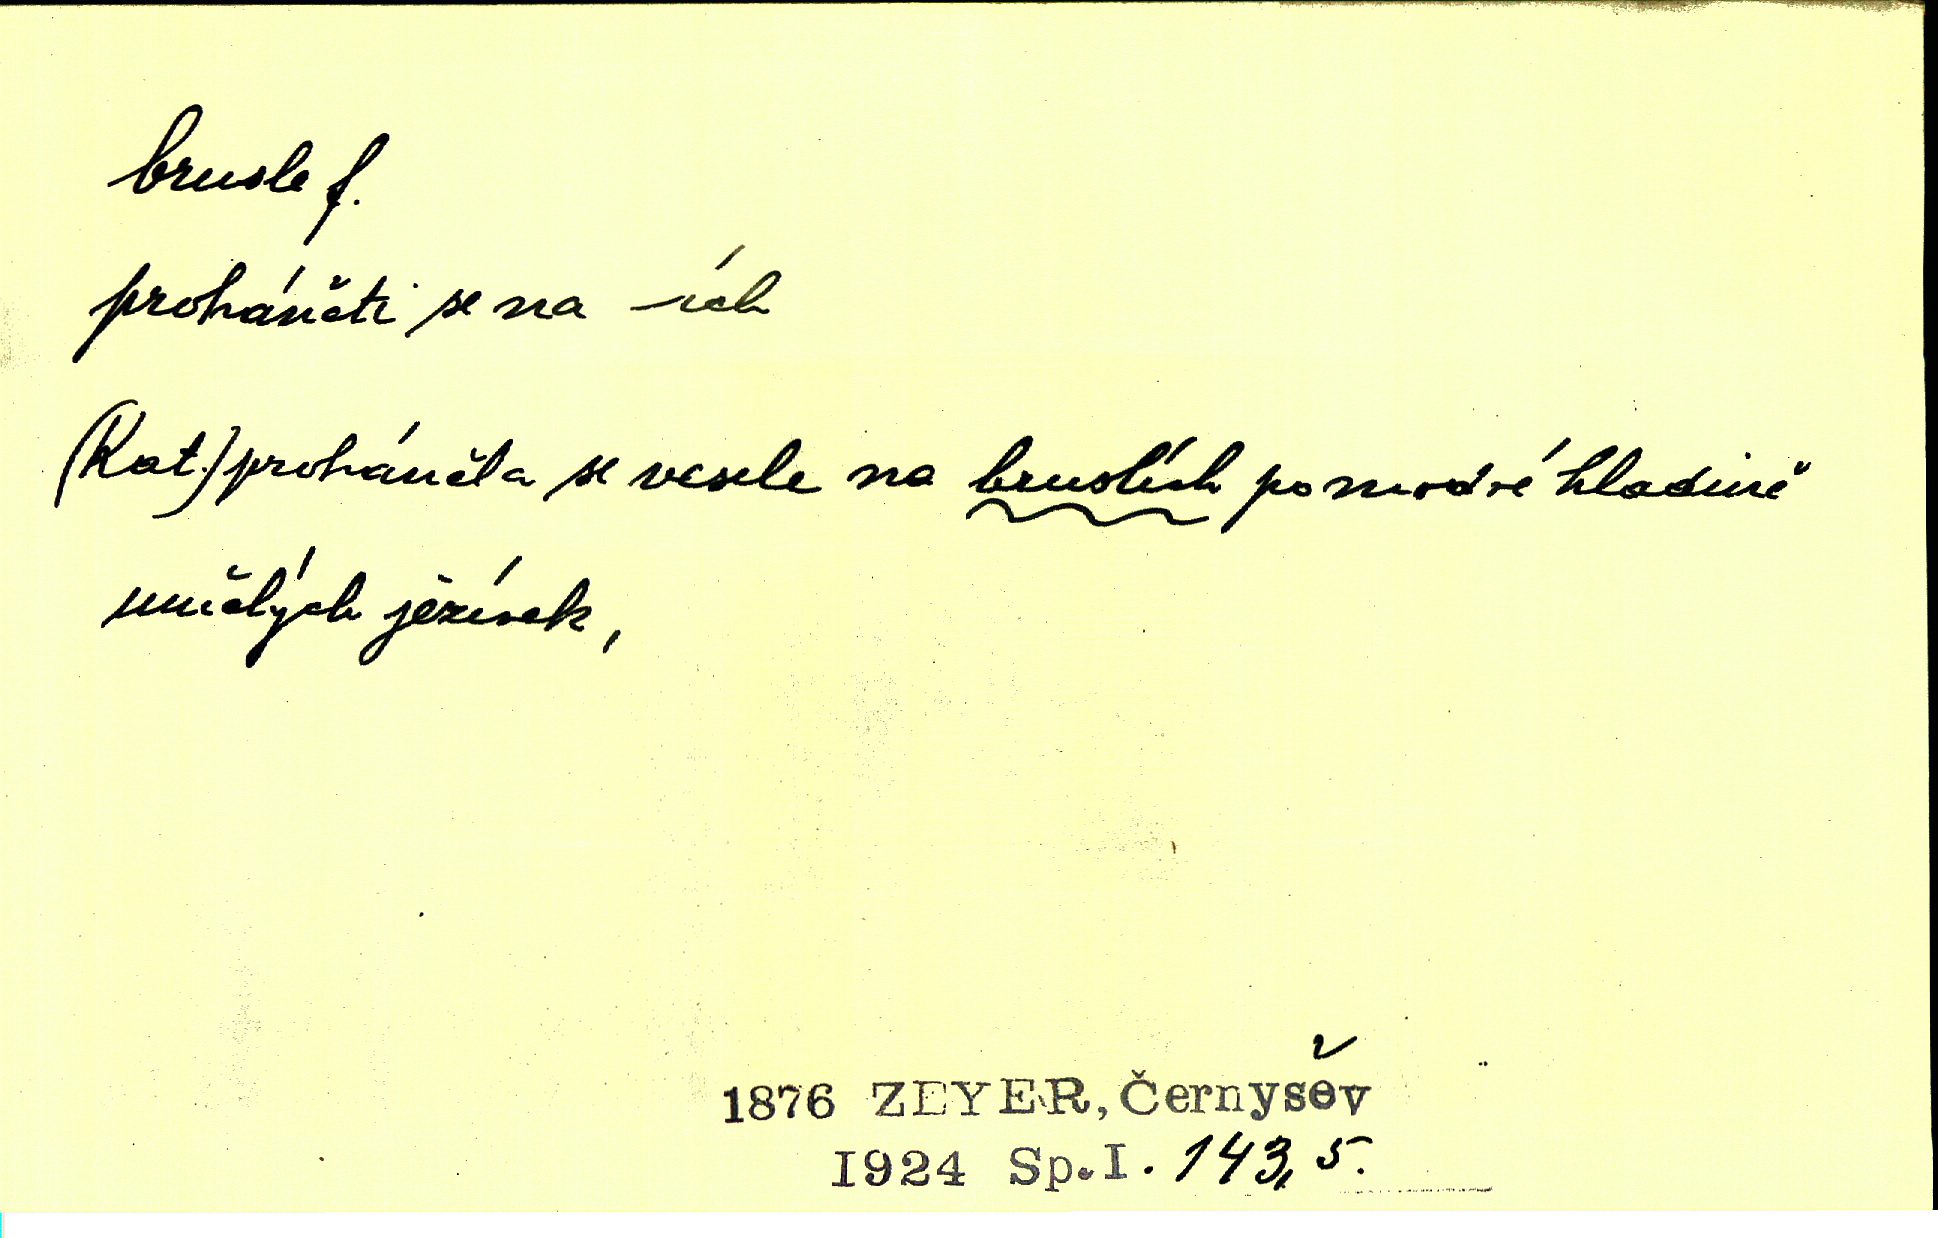 brusle f.
proháněti se na -ích
(Kat.) proháněla se vesele na bruslích po modré hladině
umělých jezírek,
1876 ZEYER, Černyšev
1924 Sp.I. 143, 5.